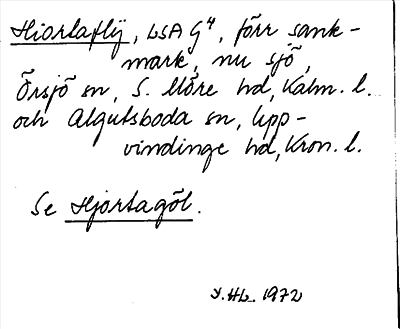 Hiortaflÿ, LSA G⁴, förr sank-
mark, nu sjö,
Örsjö sn, S. Möre hd, Kalm. l.
och Algutsboda sn, Upp-
vindinge hd, Kron. l.
Se Hjortagöl.
HL. 1972